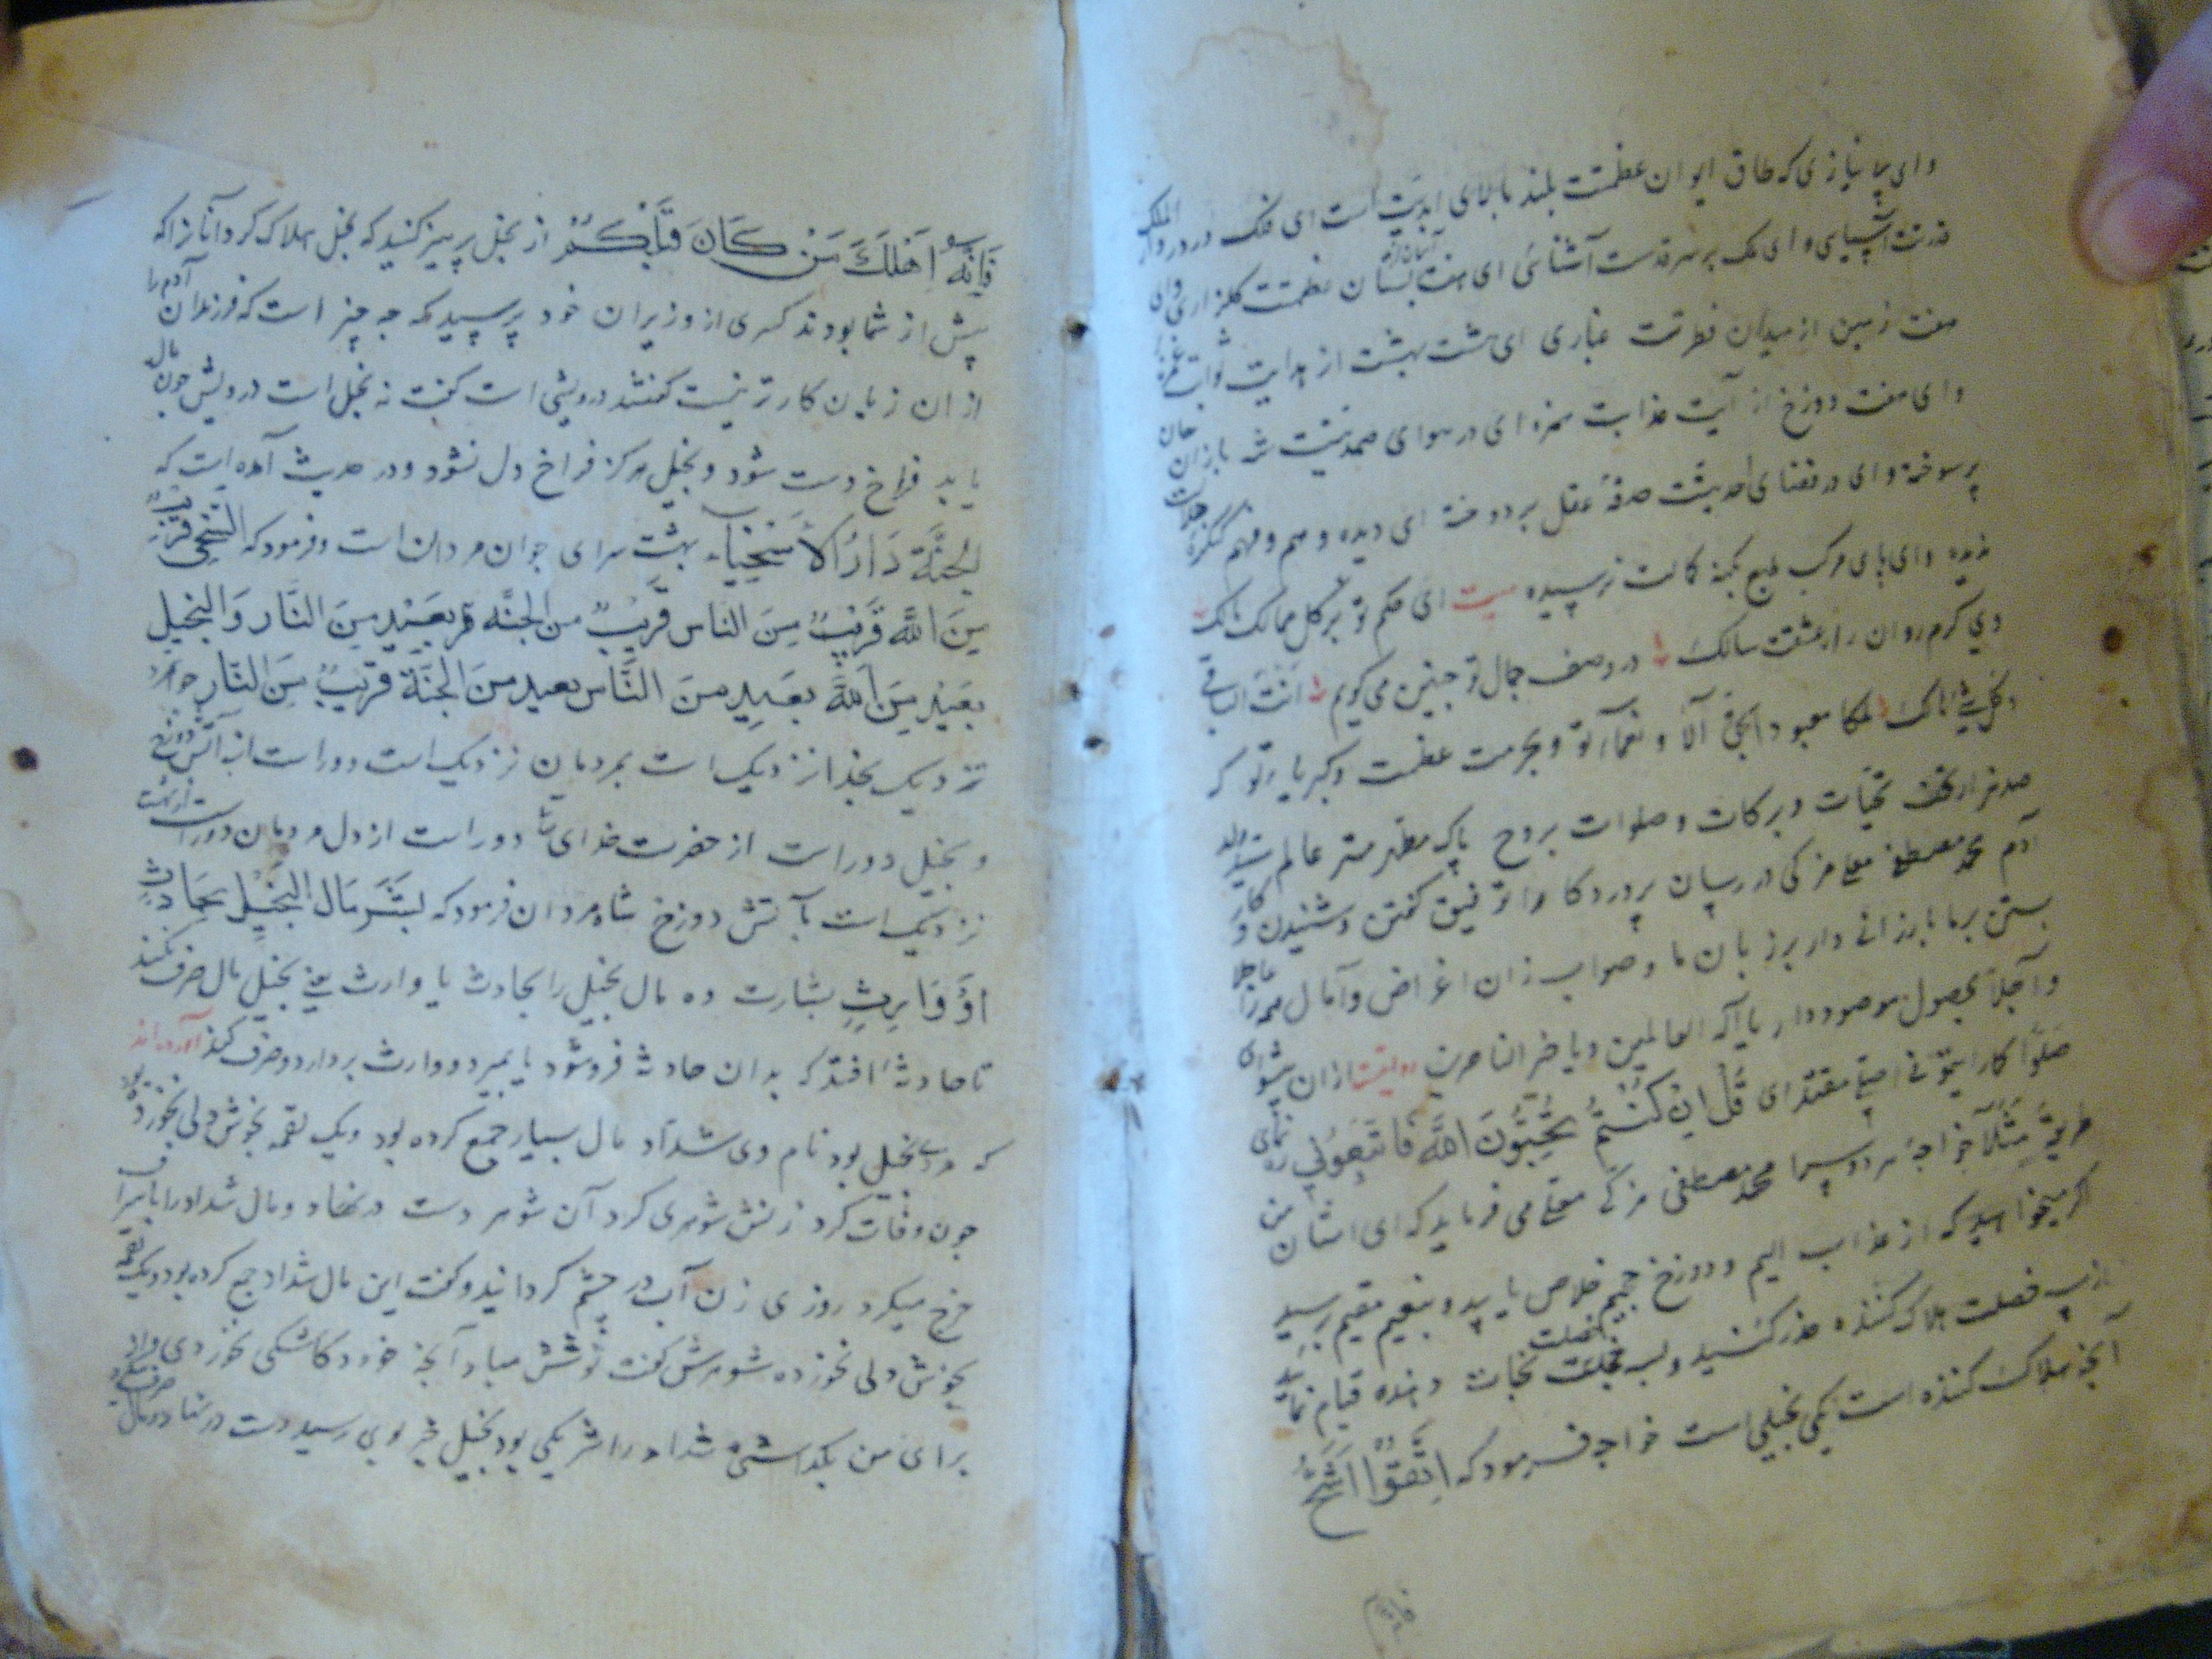 وای بی نیازی که طاق ایوان عظمتت بلند بالای ابدیت است ای فلک در دروار الملک
قدرتت آسیایی و ای ملک بر سر قدست آشنائی ای هفت آسمان از بستان عظمتت گلزاری و ای
هفت زمین از میدان فطرتت غباری ای هشت بهشت از هدایت ثوابت
وای هفت دوزخ از آیت عذابت ای در هوای صمدیتت شه بازان جان
پر سوخته و ای در فضای احدیتت عقل بر دوخته ای دیده وهم و فهم کنگره جلالت
ندیده وای پای مرکب طبع بکنه کمالت نرسیده بیت ای حکم تو بر کل ممالک مالک
وی گرم روان راز عشقت سالک در وصف جمال تو چنین می گویم انت الباقی
وکل شی هالک ملکا معبودا بحق آلا و نعماء تو و بحرمت عظمت و کبریاء تو که
صد هزار تحف تحیات و برکات و صلوات بروح پاک مطهر مهتر عالم سید ولد
آدم محمد مصطفی معلی مزکی در رسان پروردگارا توفیق گفتن و شنیدن و کار
بستن بر ما ارزانی دار بر زبان ما صواب ران اغراض و آمال همه را عاجلا
وآجلا بحصول موصول دار یا اله العالمین و یا خیر الناصرین روایتست ازان پیشوای
مقتدای قل ان کنتم تحبون الله فاتبعونی ره نمای
خواجه هر دو سرا محمد مصطفی مزکی معلی می فرماید که ای امتان من
اگر میخواهید که از عذاب الیم و دوزخ جحیم خلاص یابید و بنعیم مقیم برسید
از سه خصلت هلاک کننده حذر کنید و بسه خصلت نجات دهنده قیام نمائید
آنچه هلاک کننده است یکی بخیلی است خواجه فرمود که اتقوا الشح
فانه اهلک من کان قبلکم از بخل پرهیز کنید که بخل هلاک کرد آنانرا که
پیش از شما بودند کسری از وزیران خود پرسید که چه چیز است که فرزندان آدم را
ازان زیان کارتر نیست گفتند درویشی است گفت نه بخل است درویش چون مال
یابد فراخ دست شود و بخیل هرگز فراخ دل نشود و در حدیث آمده است که
الجنة دار الاسخیاء بهشت سرای جوان مردان است و فرمود که السخی قریب
من الله قریب من الناس قریب من الجنة بعید من النار والبخیل
بعید من الله بعید من الناس بعید من الجنة قریب من النار جوانمرد
نزدیک بخدا نزدیک است بمردمان نزدیک است دور است از آتش دوزخ
و بخیل دور است از حضرت خدای دور است از دل مردمان دور است از بهشت
نزدیک است بآتش دوزخ شاه مردان فرمود که بشر مال البخیل بحادث
او وارث بشارت ده مال بخیل را بحادث یا وارث یعنی بخیل مال صرف نکند
تا حادثه افتد که بدان حادثه فرو شود یا بمیرد و وارث بردارد و صرف کند آورده اند
که مردی بخیل بود نام وی شداد مال بسیار جمع کرده بود و یک لقمه بخوش دلی نخورده بود
چون وفات کرد زنش شوهری کرد آن شوهر دست در نهاد و مال شداد را باسراف
خرج میکرد روزی زن آب در چشم گردانید و گفت این مال شداد جمع کرده بود و یک لقمه
بخوش دلی نخورده شوهرش گفت نوشش مباد آنچه خورد کاشکی نخوردی و
برای من بگذاشتی شداد را شریکی بود بخیل خبر بوی رسید دست در نهاد و مال صرف